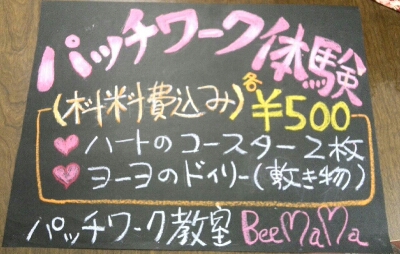 パッチワーク体験
(材料費込み)各¥500
ハートのコースター2枚
ヨーヨのドイリー(敷き物)
パッチワーク教室 BeeMaMa